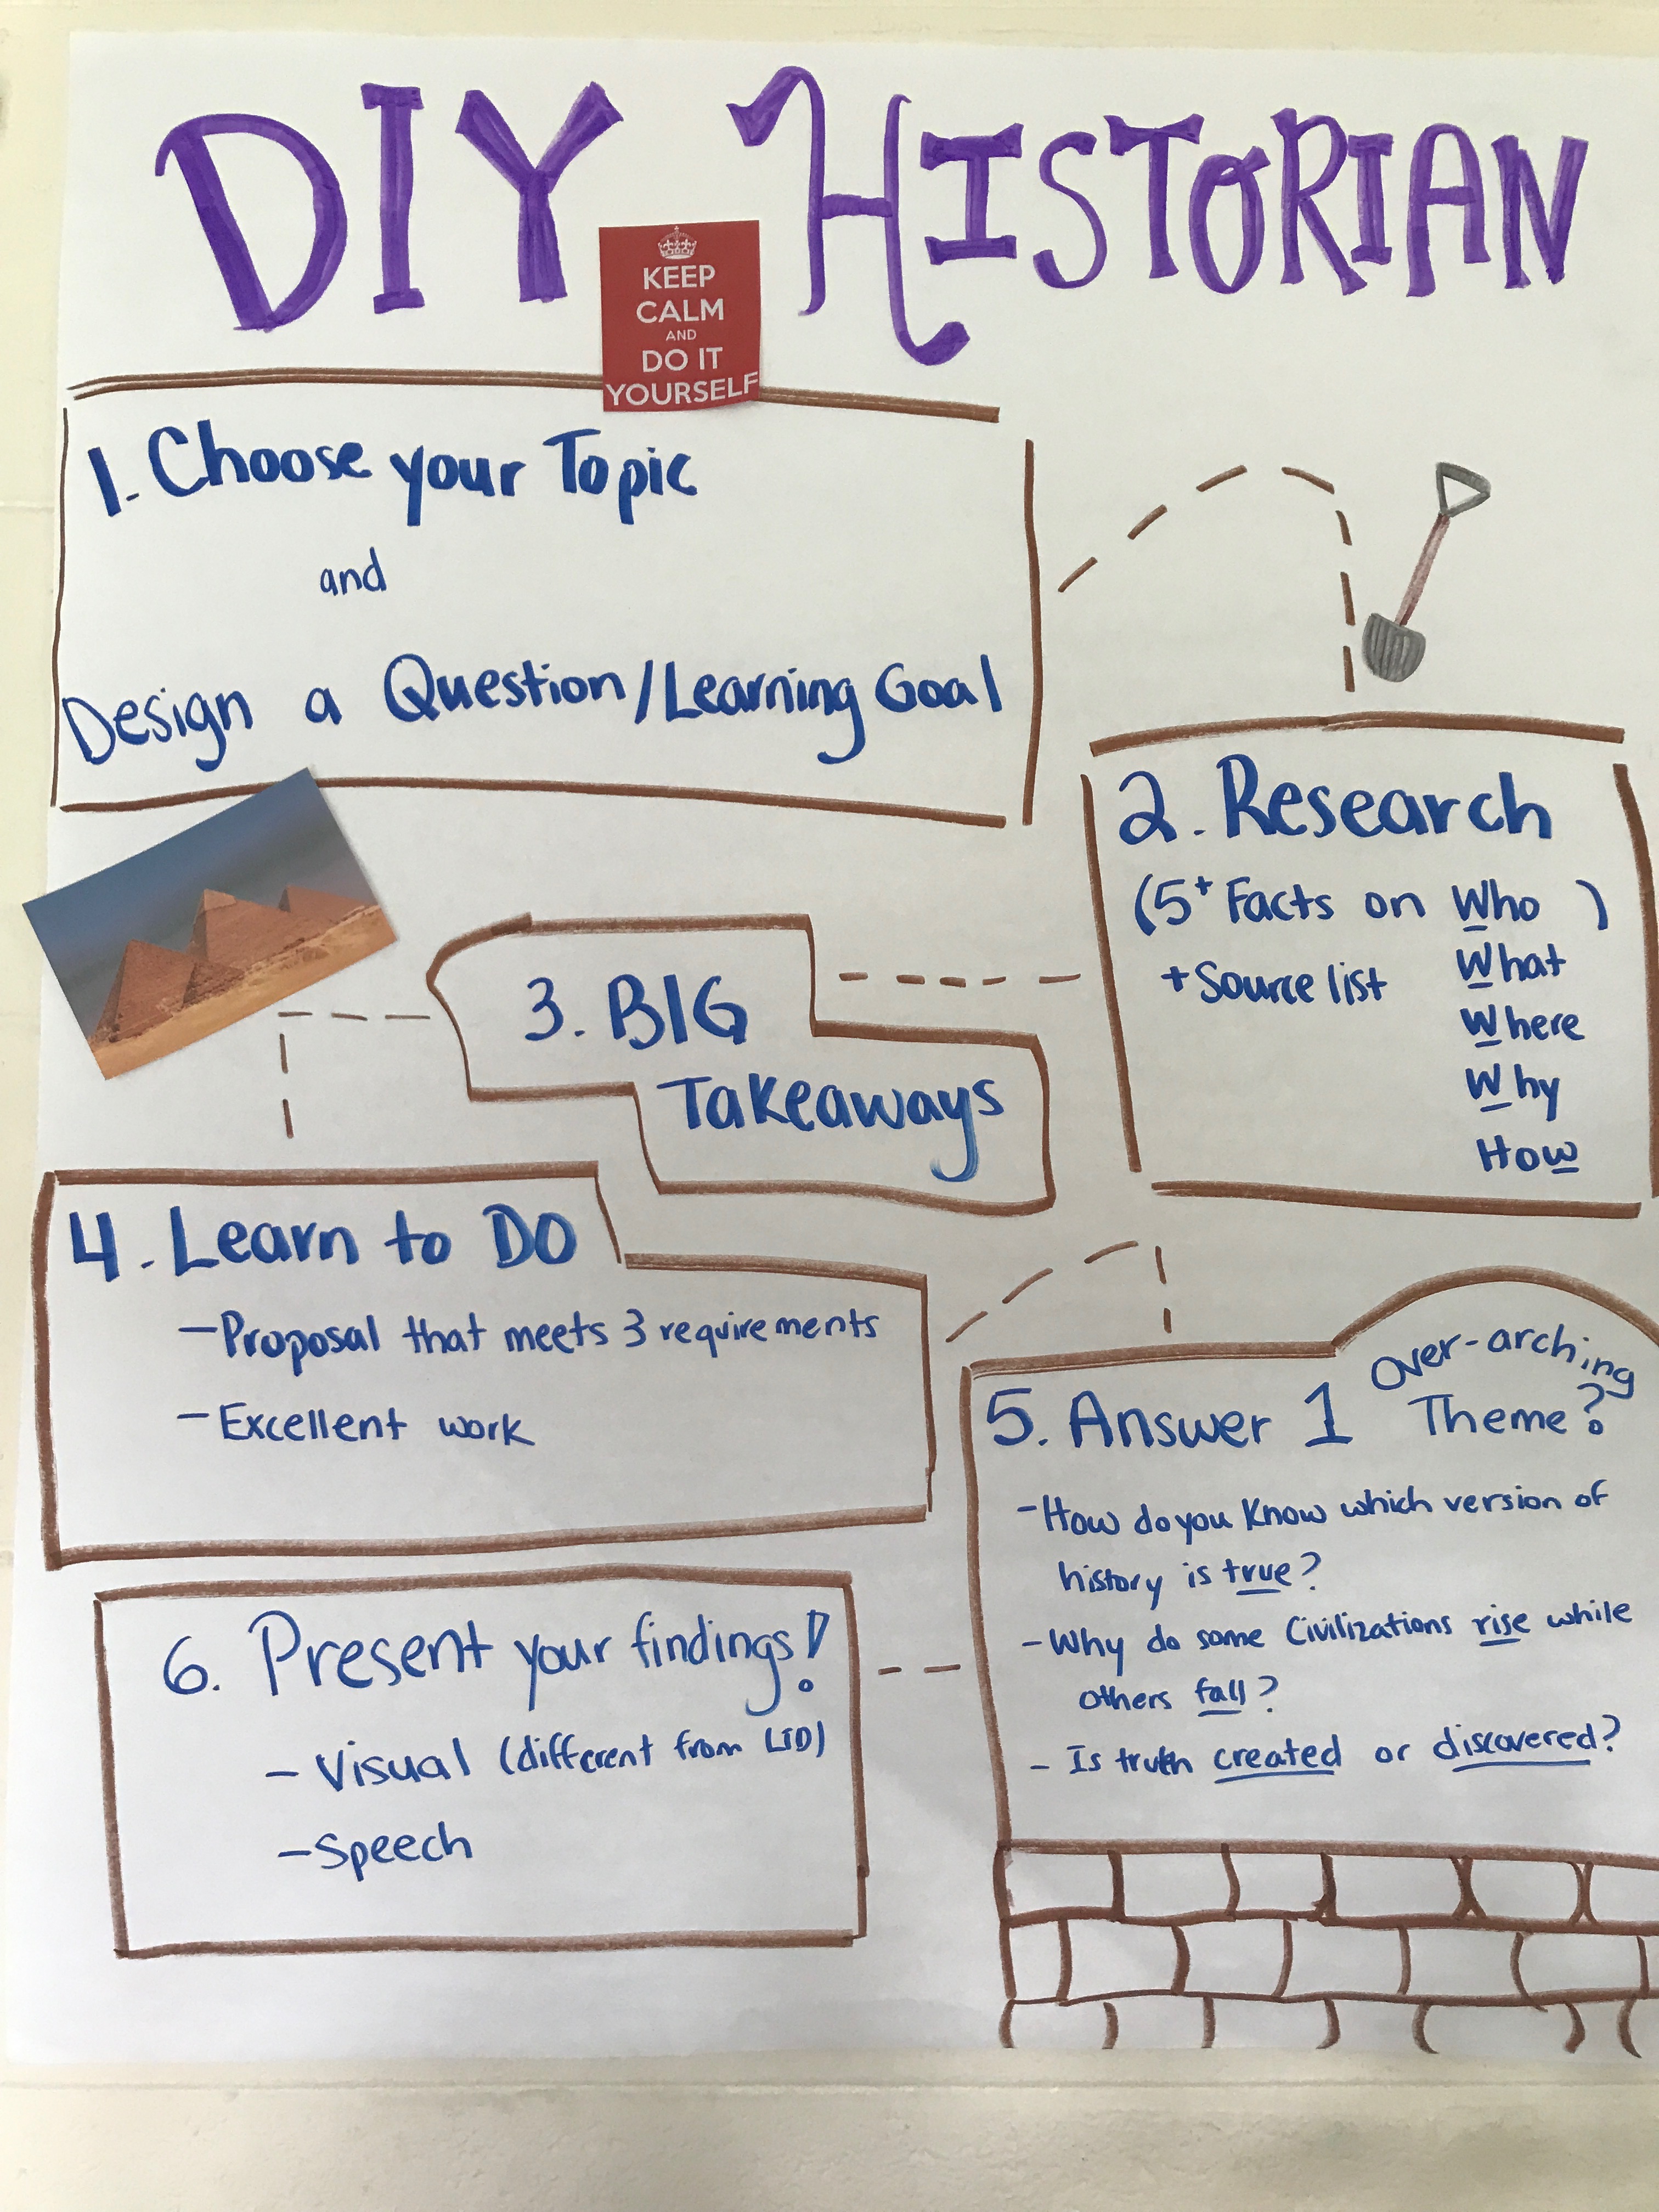 DIY HISTORIAN
KEEP
CALM
AND
DO IT
YOURSELF
1. Choose your Topic
and
Design a Question/Learning Goal
2. Research
(5+ Facts on Who )
+ Source list What
Where
Why
How
3. BIG
Takeaways
4. Learn to DO
- Proposal that meets 3 requirements
- Excellent work
5. Answer 1 Over-arching
Theme?
- How do you know which version of
history is true?
- Why do some Civilizations rise while
others fall?
- Is truth created or discovered?
6. Present your findings!
- Visual (different from LTD)
- Speech